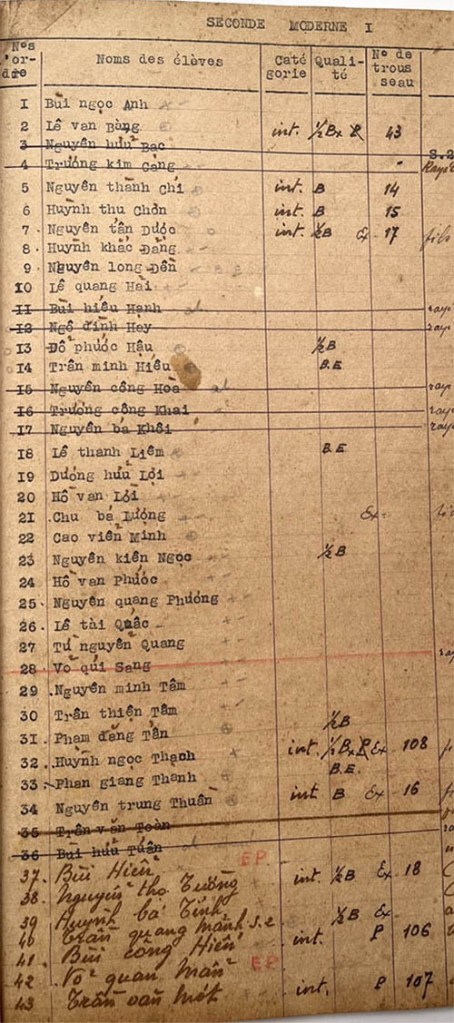 SECONDE MODERNE I
Nos d'or- dre Noms des élèves Caté gorie Quali- té No de trous seau
1 Bùi ngọc Anh
2 Lê van Bằng int. ½ Bx P 43
3 Nguyễn hữu Bạc S.2
4 Trương kim Cang Rayé
5 Nguyễn thành Chí int. B 14
6 Huỳnh thu Chơn int. B 15
7 Nguyễn tấn Dược int. ½B Ex 17 fils
8 Huỳnh khắc Đằng
9 Nguyễn long Đền
10 Lê quang Hài
11 Bùi hiếu Hạnh rayé
12 Ngô đình Hay rayé
13 Đỗ phước Hậu ½B
14 Trần minh Hiếu B.E
15 Nguyễn công Hoà
16 Trương công Khai
17 Nguyễn bá Khôi
18 Lê thanh Liêm B.E
19 Dương hữu Lợi
20 Hồ van Lợi
21 Chu bá Lượng Ex.
22 Cao viễn Minh
23 Nguyễn kiên Ngọc ½B
24 Hồ van Phước
25. Nguyễn quang Phương
26. Lê tài Quấc
27 Từ nguyên Quang
28. Võ quí Sang
29 .Nguyễn minh Tâm
30 Trần thiện Tâm ½B
31. Phạm đăng Tấn int. ½ Bx P Ex 108
32.. Huỳnh ngọc Thạch B.E.
33. Phan giang Thanh int B Ex 16
34 Nguyễn trung Thuần
35 Trần văn Toàn
36 Bùi hữu Tuân
37. Bùi Hiển E.P. int. ½B Ex 18
38. Nguyễn thọ Tường
39 Huỳnh bá Tính ½B Ex
40 Trần quang Mành S.2 int. P 106
41. Bùi công Hiến
42 Võ quan Mẫn E.P.
43 Trần văn Một int. P 107